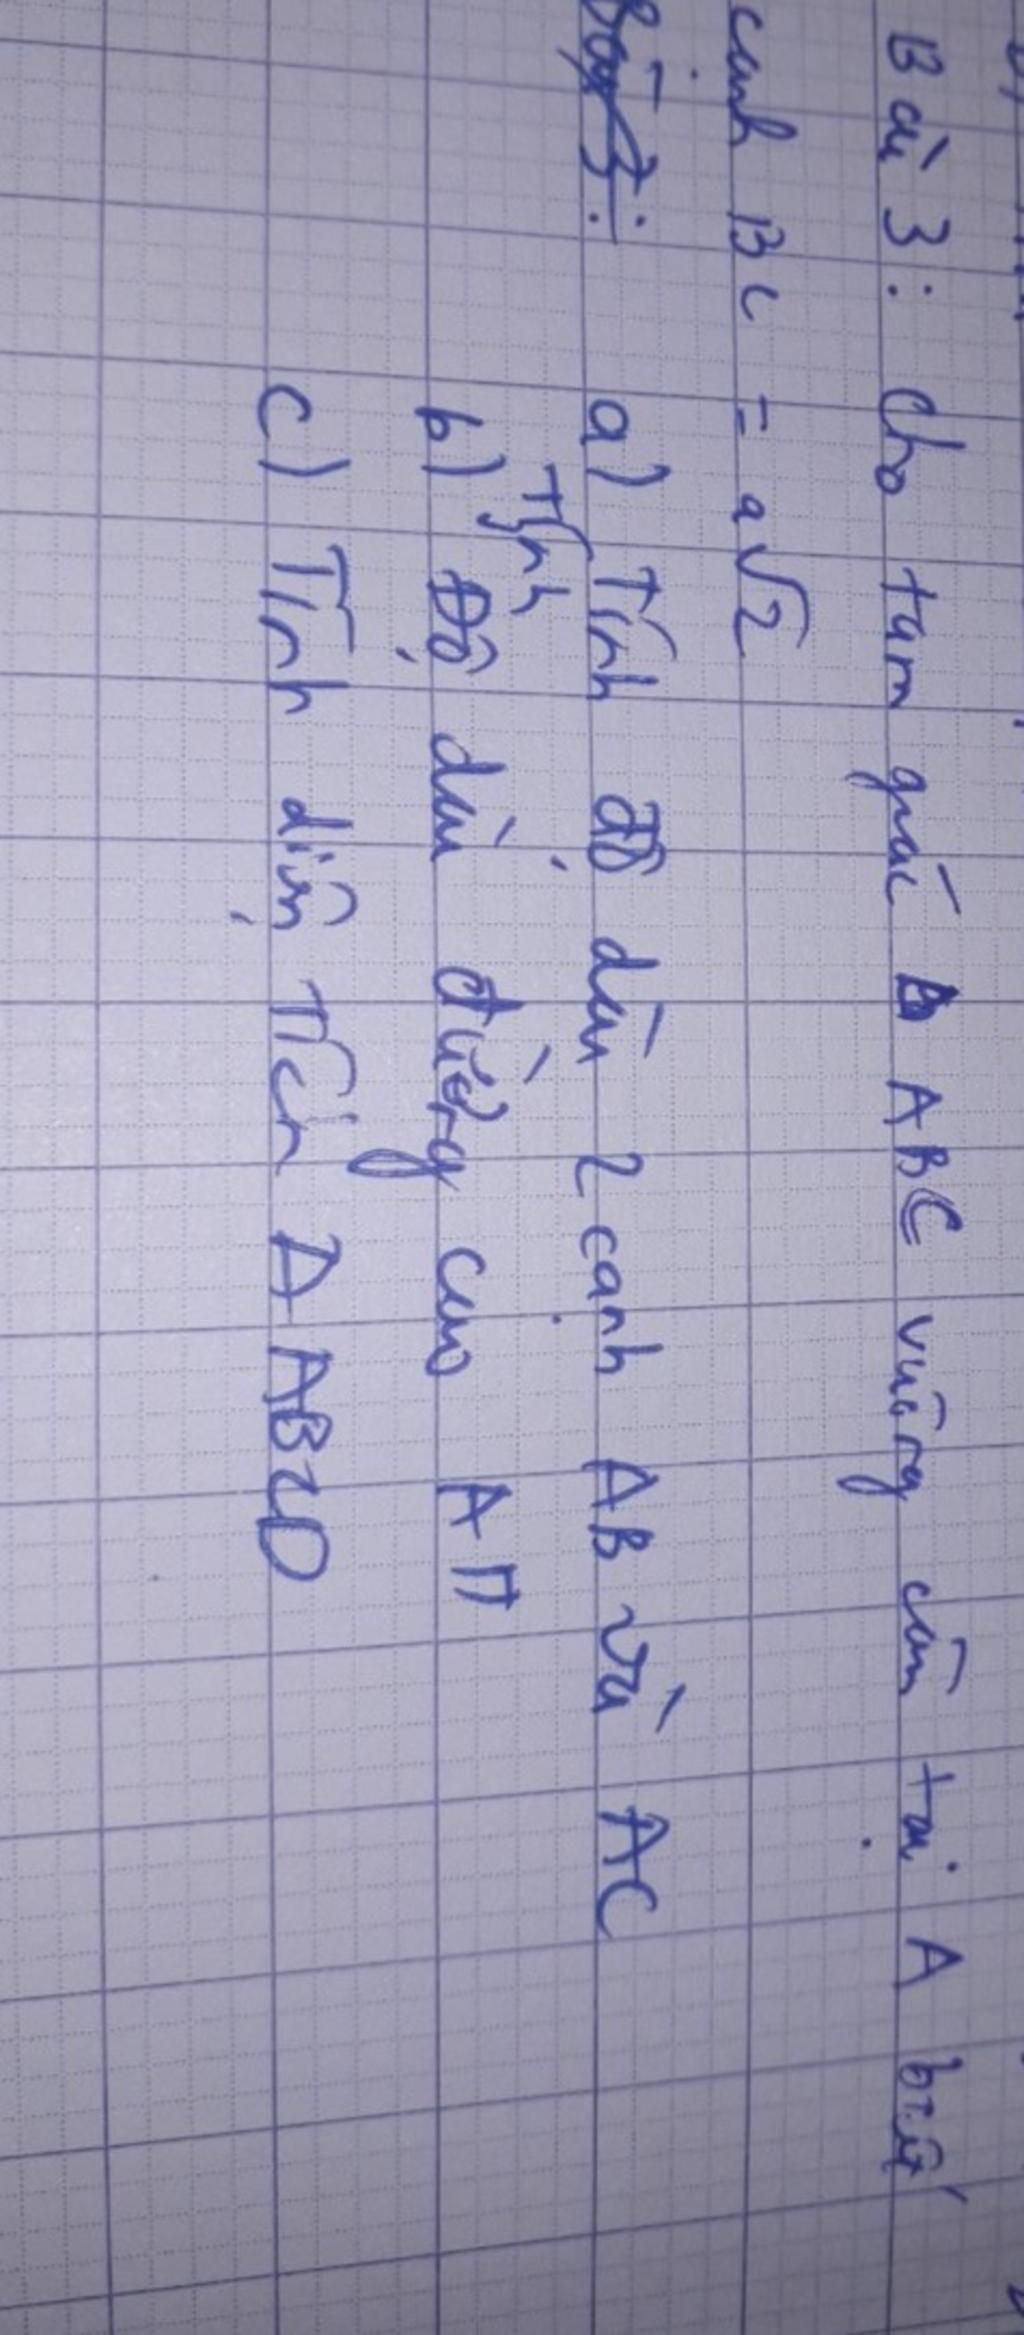 Bài 3: Cho tam giác ABC vuông cân tại A biết
cạnh BC = a√2
Bài 3:
a) Tính độ dài 2 cạnh AB và AC
Tính
b) Độ dài đường cao AH
c) Tính diện tích Δ ABC